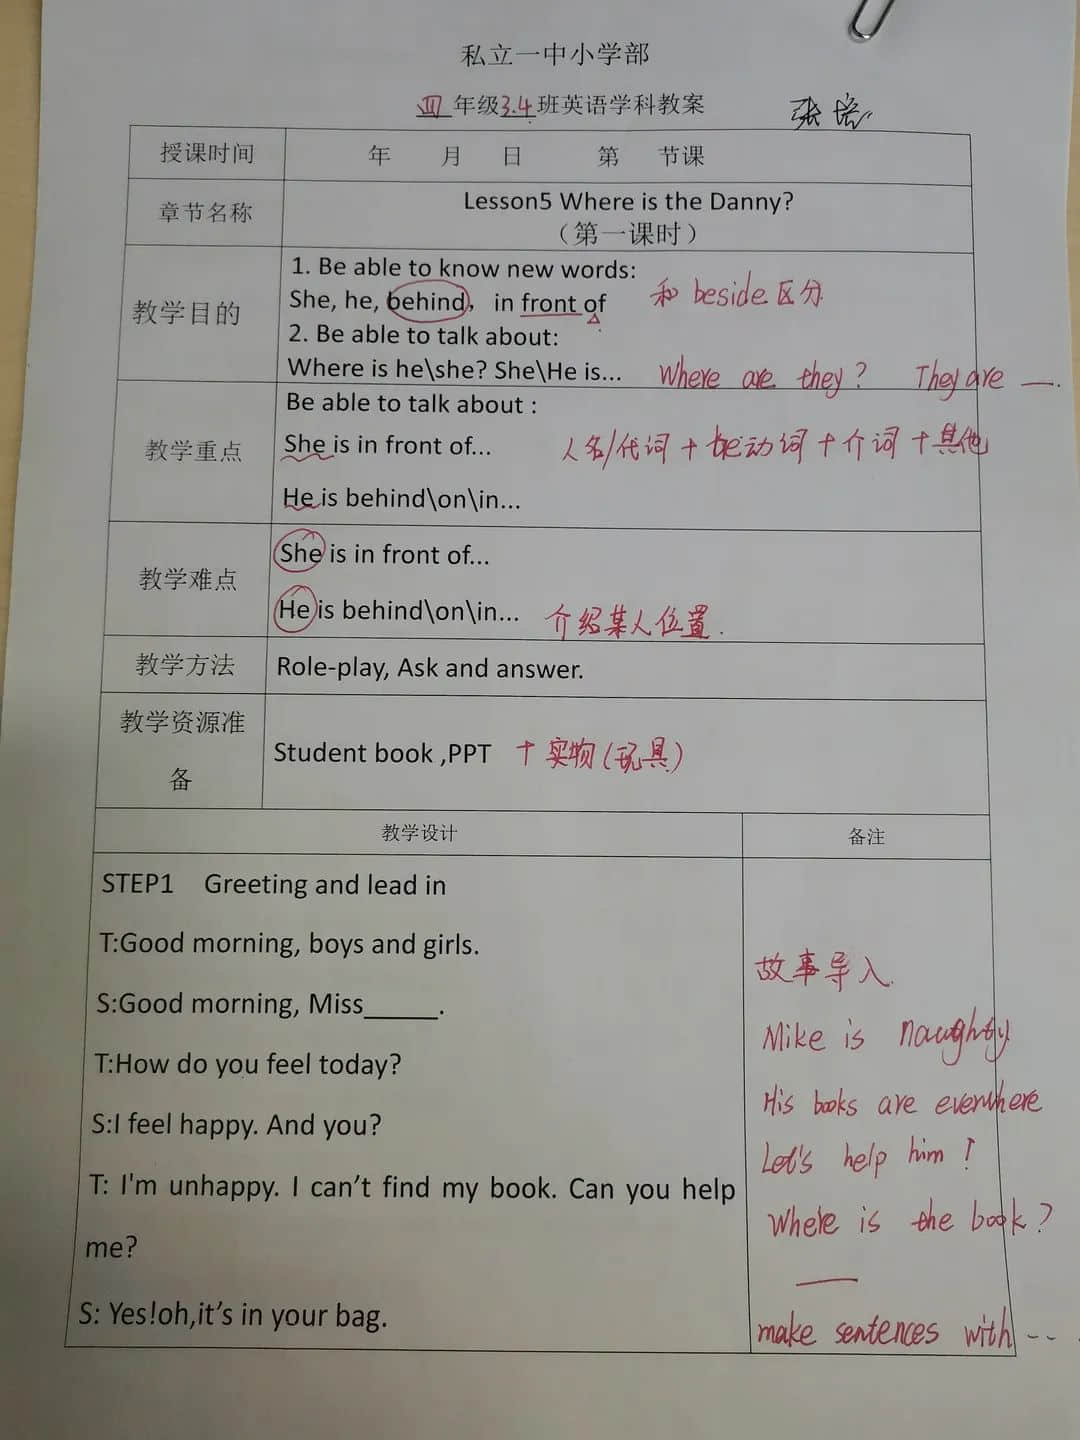 私立一中小学部
四年级3.4班英语学科教案 张培
授课时间 年 月 日 第 节课
章节名称 Lesson5 Where is the Danny?
（第一课时）
教学目的
1. Be able to know new words:
She, he, behind, in front of 和 beside 区分
2. Be able to talk about:
Where is he\she? She\He is... Where are they? They are —.
教学重点
Be able to talk about :
She is in front of... 人名/代词+be动词+介词+其他
He is behind\on\in...
教学难点
She is in front of...
He is behind\on\in... 介绍某人位置.
教学方法 Role-play, Ask and answer.
教学资源准
备
Student book ,PPT + 实物(玩具)
教学设计 备注
STEP1 Greeting and lead in
T:Good morning, boys and girls.
S:Good morning, Miss______.
T:How do you feel today?
S:I feel happy. And you?
T: I'm unhappy. I can’t find my book. Can you help
me?
S: Yes!oh,it’s in your bag.
故事导入.
Mike is naughty
His books are everwhere
Let's help him!
Where is the book?
—
make sentences with ---